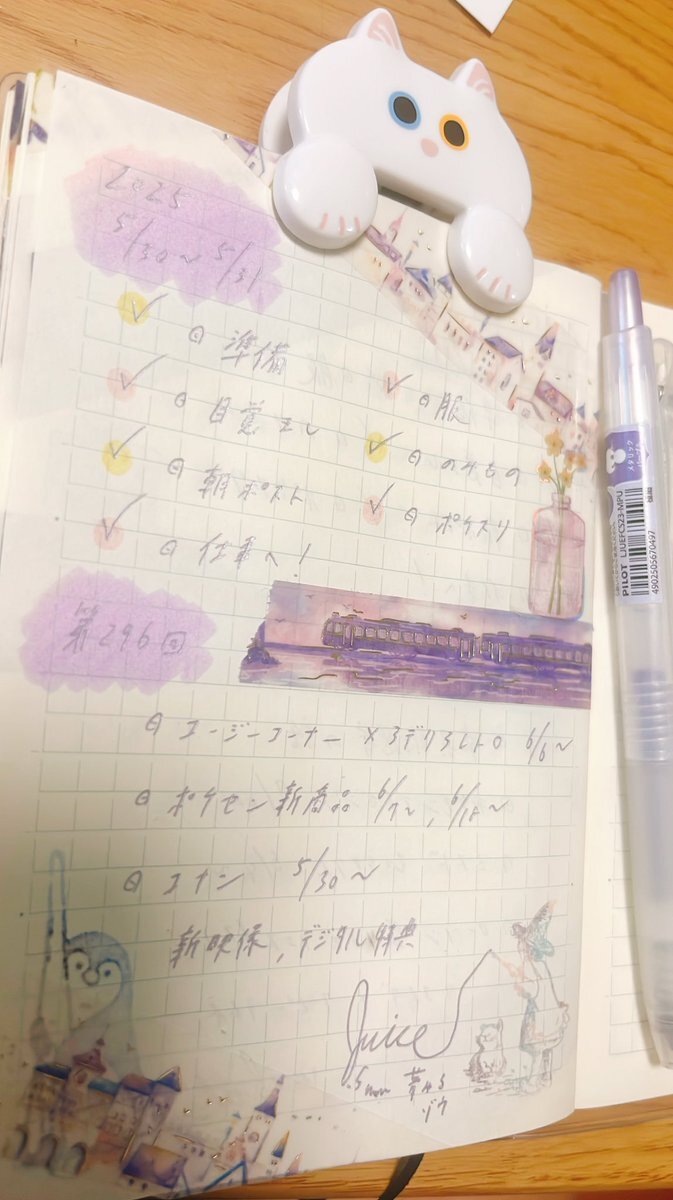 2025
5/30～5/31
準備
目覚まし
服
朝ポスト
のみもの
仕事へ!
ポケスリ
第296回
エージーコーナー × 3デリ&レトロ 6/6～
ポケセン新商品 6/7～, 6/18～
コナン 5/30～
新映像, デジタル特典
Juice
.5mm
メタリック
PILOT LJUEFCS23-MPU
4902505670497